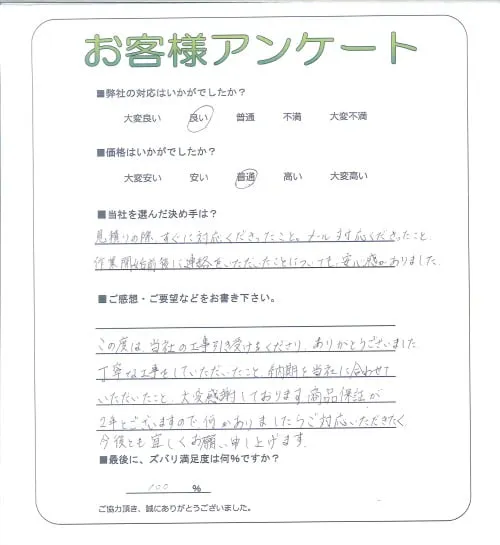 お客様アンケート
■弊社の対応はいかがでしたか？
大変良い 良い 普通 不満 大変不満
■価格はいかがでしたか？
大変安い 安い 普通 高い 大変高い
■当社を選んだ決め手は？
見積りの際、すぐに対応くださったこと。メール対応くださったこと
作業開始前後に連絡をいただいたことについても、安心感がありました
■ご感想・ご要望などをお書き下さい。
この度は、当社の工事引き受けをくださり、ありがとうございました
丁寧な工事をしていただいたこと、納期を当社に合わせて
いただいたこと、大変感謝しております。商品保証が
2年とございますので、何かありましたらご対応いただきたく
今後とも宜しくお願い申し上げます。
■最後に、ズバリ満足度は何%ですか？
100 %
ご協力頂き、誠にありがとうございました。